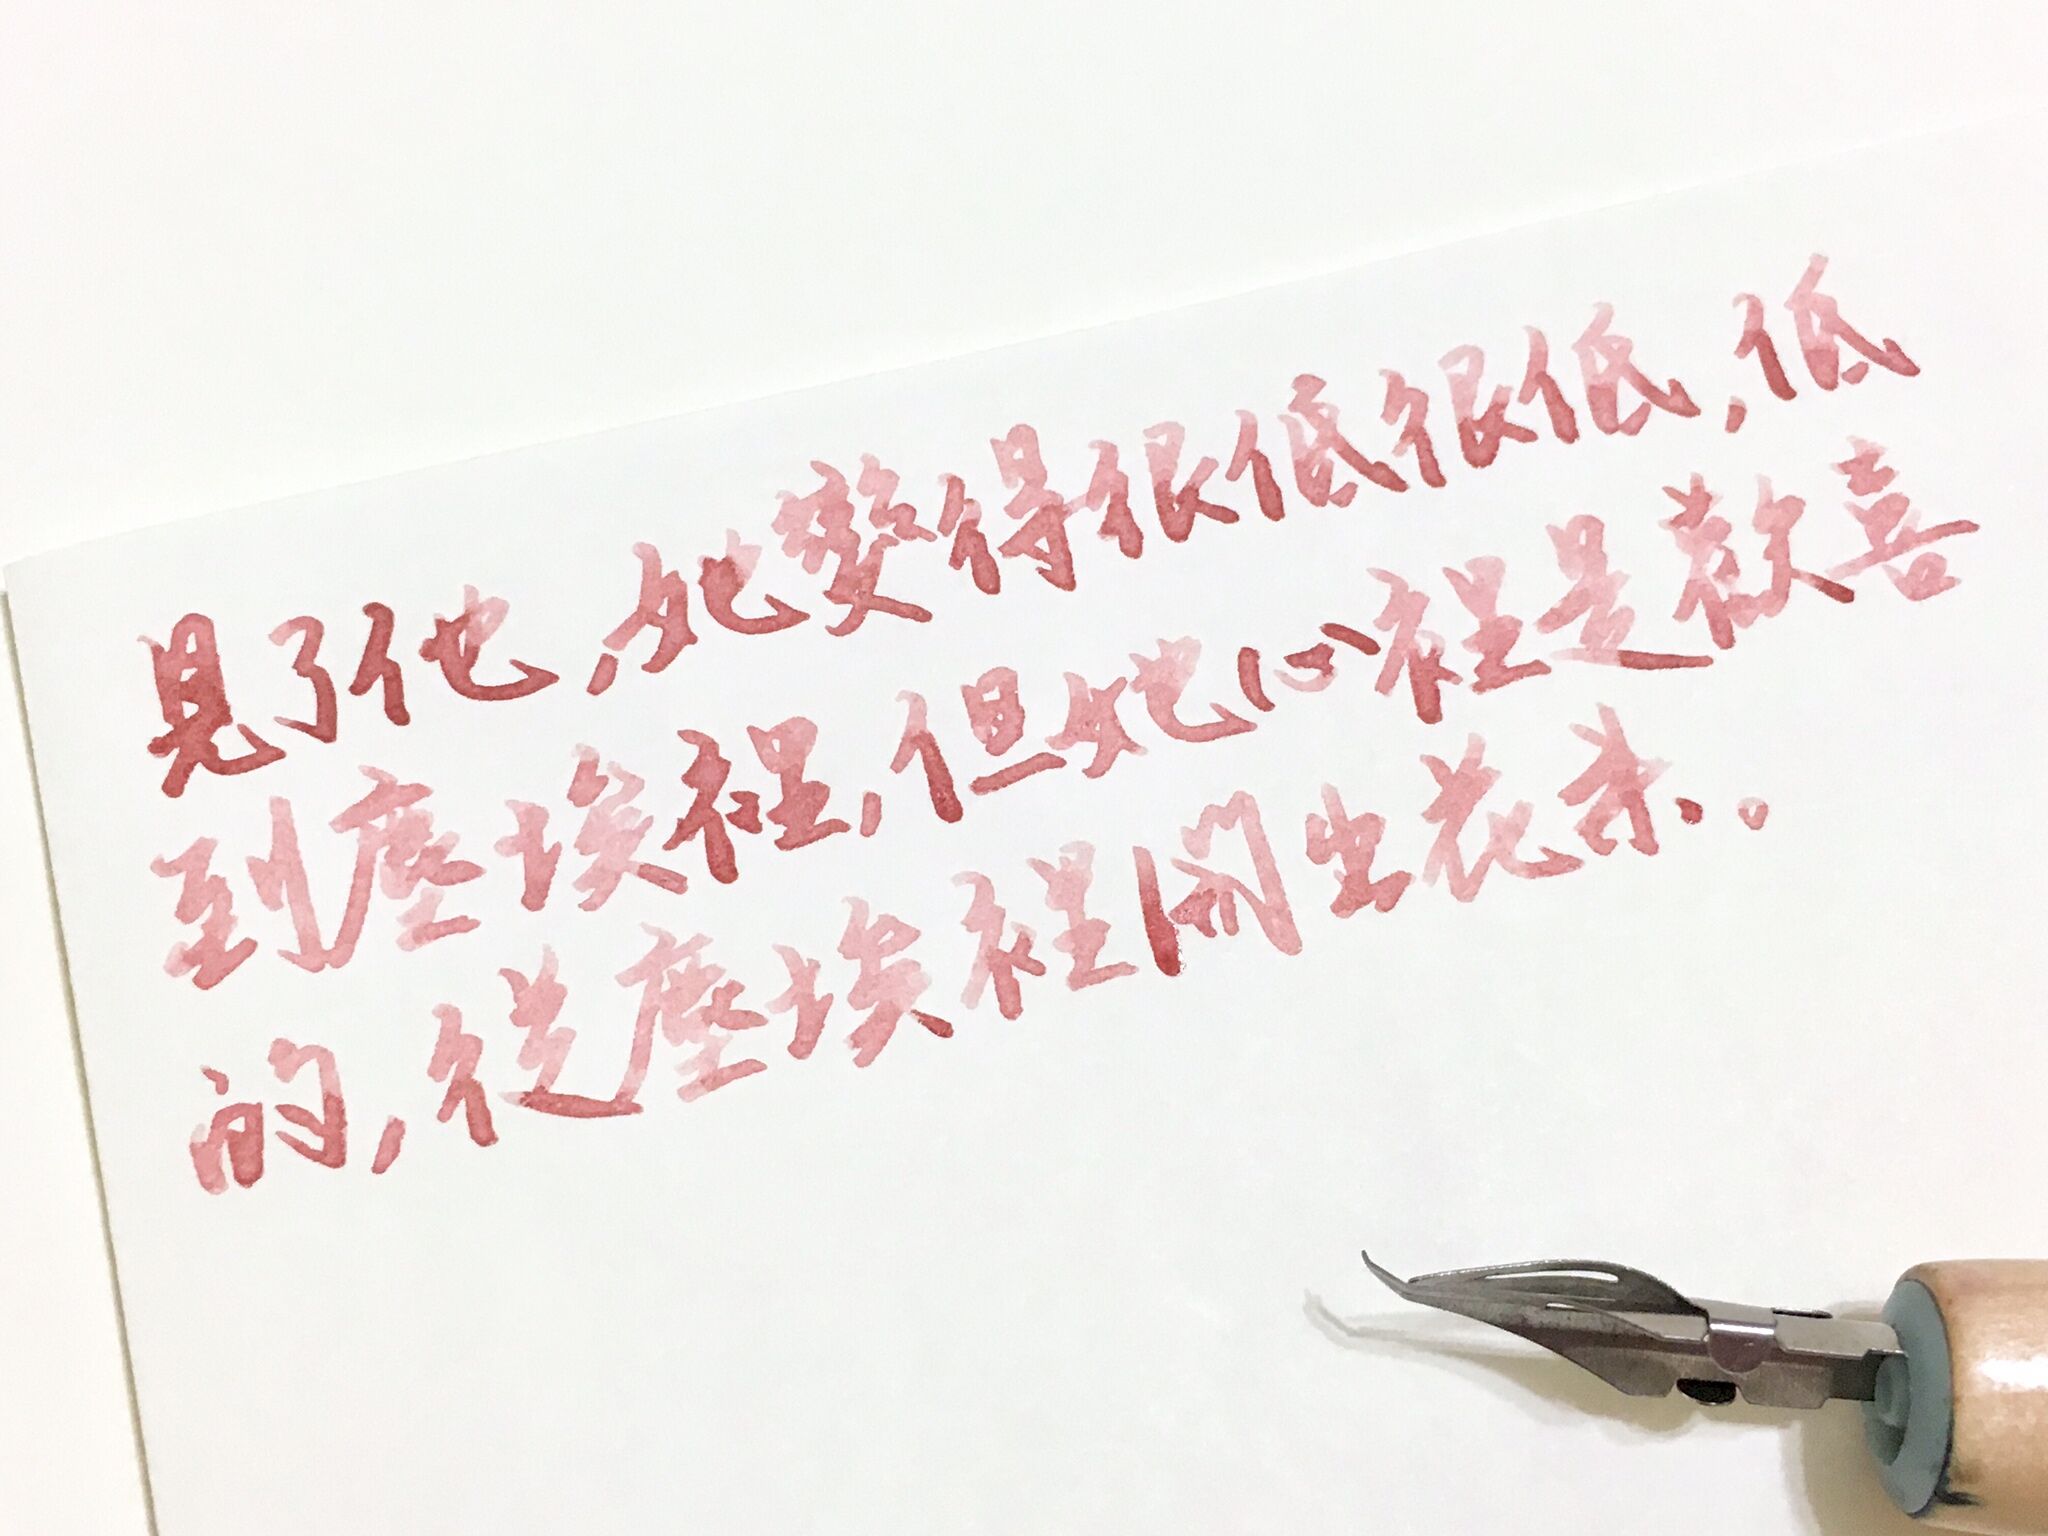 見了他,她變得很低很低,低
到塵埃裡,但她心裡是歡喜
的,從塵埃裡開出花來。